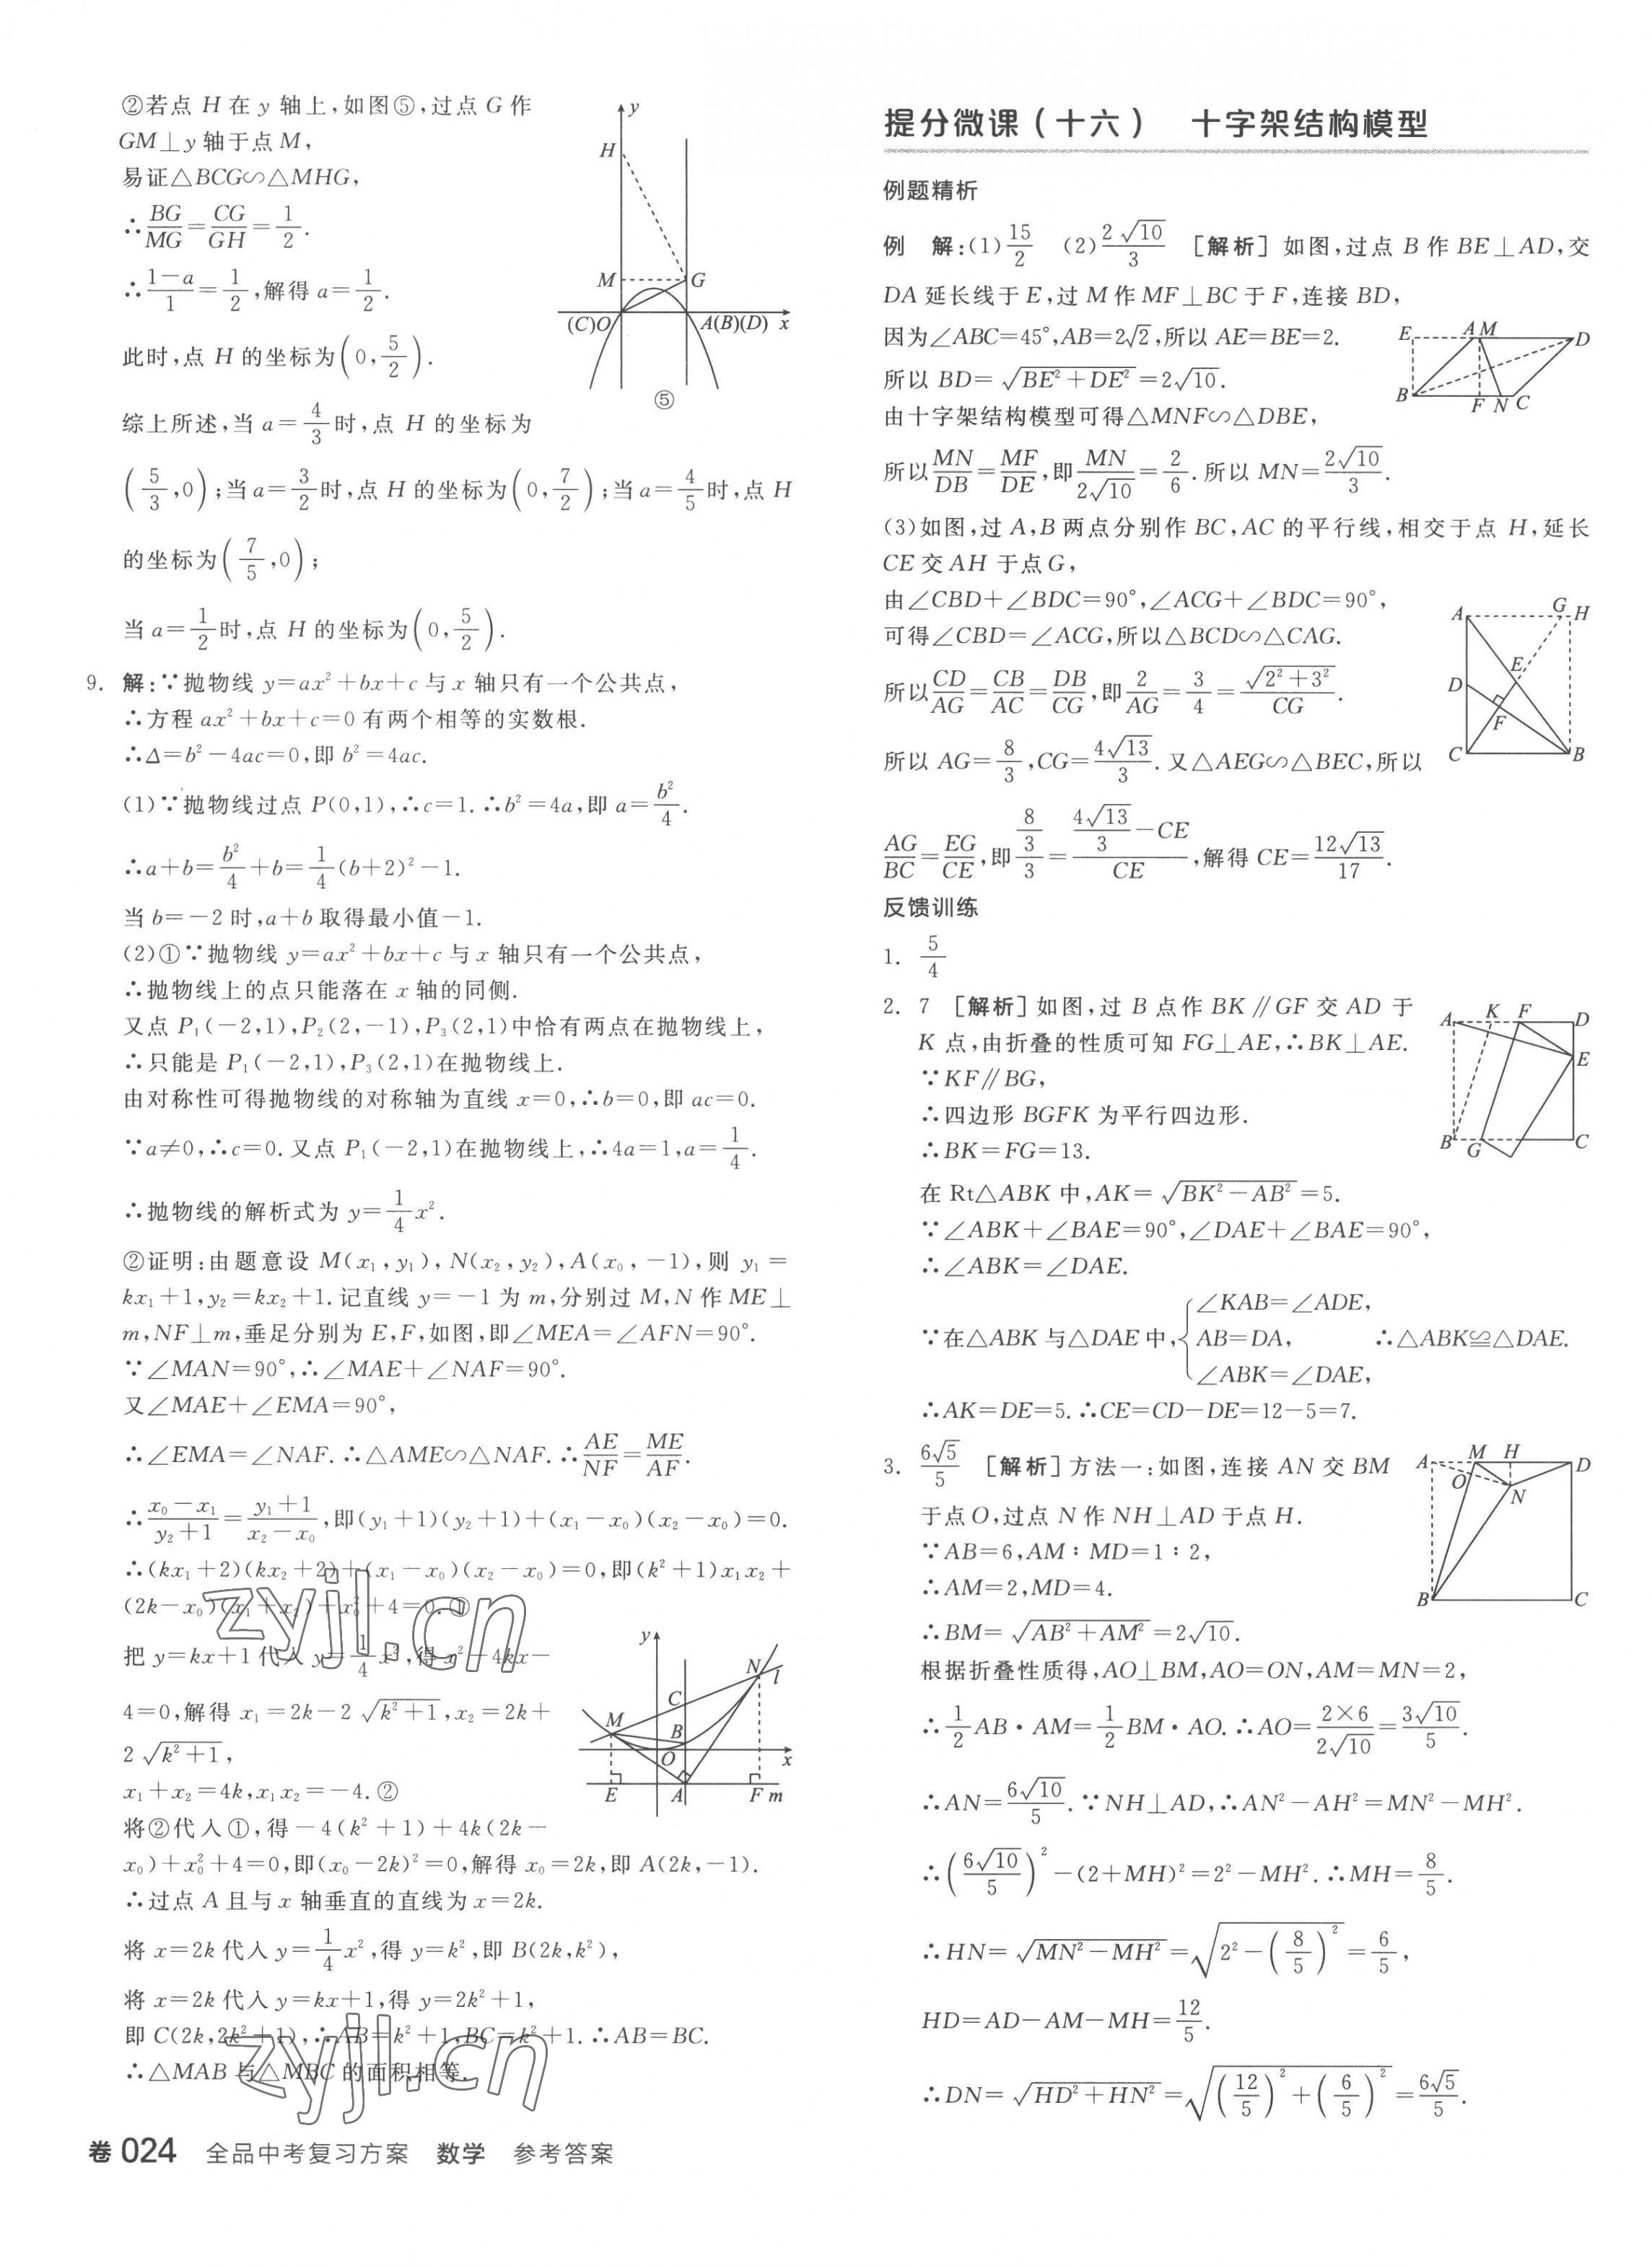 ②若点 H 在 y 轴上,如图⑤,过点 G 作
GM⊥y 轴于点 M,
易证△BCG∽△MHG,
∴BG/MG=CG/GH=1/2.
∴(1-a)/1=1/2,解得 a=1/2.
此时,点 H 的坐标为(0,5/2).
综上所述,当 a=4/3时,点 H 的坐标为
(5/3,0);当 a=3/2时,点 H 的坐标为(0,7/2);当 a=4/5时,点 H
的坐标为(7/5,0);
当 a=1/2时,点 H 的坐标为(0,5/2).
y
H
M
G
(C)O
A(B)(D)
x
⑤
9. 解:∵抛物线 y=ax²+bx+c 与 x 轴只有一个公共点,
∴方程 ax²+bx+c=0 有两个相等的实数根.
∴Δ=b²-4ac=0,即 b²=4ac.
(1)∵抛物线过点 P(0,1),∴c=1.∴b²=4a,即 a=b²/4.
∴a+b=b²/4+b=1/4(b+2)²-1.
当 b=-2 时,a+b 取得最小值-1.
(2)①∵抛物线 y=ax²+bx+c 与 x 轴只有一个公共点,
∴抛物线上的点只能落在 x 轴的同侧.
又点 P₁(-2,1),P₂(2,-1),P₃(2,1)中恰有两点在抛物线上,
∴只能是 P₁(-2,1),P₃(2,1)在抛物线上.
由对称性可得抛物线的对称轴为直线 x=0,∴b=0,即 ac=0.
∵a≠0,∴c=0.又点 P₁(-2,1)在抛物线上,∴4a=1,a=1/4.
∴抛物线的解析式为 y=1/4x².
②证明:由题意设 M(x₁,y₁),N(x₂,y₂),A(x₀,-1),则 y₁=
kx₁+1,y₂=kx₂+1.记直线 y=-1 为 m,分别过 M,N 作 ME⊥
m,NF⊥m,垂足分别为 E,F,如图,即∠MEA=∠AFN=90°.
∵∠MAN=90°,∴∠MAE+∠NAF=90°.
又∠MAE+∠EMA=90°,
∴∠EMA=∠NAF.∴△AME∽△NAF.∴AE/NF=ME/AF.
∴(x₀-x₁)/(y₂+1)=(y₁+1)/(x₂-x₀),即(y₁+1)(y₂+1)+(x₁-x₀)(x₂-x₀)=0.
∴(kx₁+2)(kx₂+2)+(x₁-x₀)(x₂-x₀)=0,即(k²+1)x₁x₂+
(2k-x₀)(x₁+x₂)+x₀²+4=0.①
把 y=kx+1 代入 y=1/4x²,得 x²-4kx-
4=0,解得 x₁=2k-2√(k²+1),x₂=2k+
2√(k²+1),
x₁+x₂=4k,x₁x₂=-4.②
将②代入①,得-4(k²+1)+4k(2k-
x₀)+x₀²+4=0,即(x₀-2k)²=0,解得 x₀=2k,即 A(2k,-1).
∴过点 A 且与 x 轴垂直的直线为 x=2k.
将 x=2k 代入 y=1/4x²,得 y=k²,即 B(2k,k²),
将 x=2k 代入 y=kx+1,得 y=2k²+1,
即 C(2k,2k²+1),∴AB=k²+1,BC=k²+1.∴AB=BC.
∴△MAB 与△MBC 的面积相等.
y
N
l
C
M
B
O
x
E
A
F m
zyjl.cn
zyjl.cn
卷 024 全品中考复习方案 数学 参考答案
提分微课(十六) 十字架结构模型
例题精析
例 解:(1)15/2 (2)2√10/3 [解析]如图,过点 B 作 BE⊥AD,交
DA 延长线于 E,过 M 作 MF⊥BC 于 F,连接 BD,
因为∠ABC=45°,AB=2√2,所以 AE=BE=2.
所以 BD=√(BE²+DE²)=2√10.
由十字架结构模型可得△MNF∽△DBE,
所以MN/DB=MF/DE,即MN/2√10=2/6.所以 MN=2√10/3.
E
A M
D
B
F N C
(3)如图,过 A,B 两点分别作 BC,AC 的平行线,相交于点 H,延长
CE 交 AH 于点 G,
由∠CBD+∠BDC=90°,∠ACG+∠BDC=90°,
可得∠CBD=∠ACG,所以△BCD∽△CAG.
所以CD/AG=CB/AC=DB/CG,即2/AG=3/4=√(2²+3²)/CG.
所以 AG=8/3,CG=4√13/3.又△AEG∽△BEC,所以
AG/BC=EG/CE,即(8/3)/3=(4√13/3-CE)/CE,解得 CE=12√13/17.
A
G H
E
D
F
C
B
反馈训练
1. 5/4
2. 7 [解析]如图,过 B 点作 BK∥GF 交 AD 于
K 点,由折叠的性质可知 FG⊥AE,∴BK⊥AE.
∵KF∥BG,
∴四边形 BGFK 为平行四边形.
∴BK=FG=13.
在 Rt△ABK 中,AK=√(BK²-AB²)=5.
∵∠ABK+∠BAE=90°,∠DAE+∠BAE=90°,
∴∠ABK=∠DAE.
∵在△ABK 与△DAE 中,{∠KAB=∠ADE,
AB=DA,
∠ABK=∠DAE,
∴△ABK≌△DAE.
∴AK=DE=5.∴CE=CD-DE=12-5=7.
A K F D
E
B G C
3. 6√5/5 [解析]方法一:如图,连接 AN 交 BM
于点 O,过点 N 作 NH⊥AD 于点 H.
∵AB=6,AM∶MD=1∶2,
∴AM=2,MD=4.
∴BM=√(AB²+AM²)=2√10.
根据折叠性质得,AO⊥BM,AO=ON,AM=MN=2,
∴1/2AB·AM=1/2BM·AO.∴AO=2×6/2√10=3√10/5.
∴AN=6√10/5.∵NH⊥AD,∴AN²-AH²=MN²-MH².
∴(6√10/5)²-(2+MH)²=2²-MH².∴MH=8/5.
∴HN=√(MN²-MH²)=√(2²-(8/5)²)=6/5,
HD=AD-AM-MH=12/5.
∴DN=√(HD²+HN²)=√((12/5)²+(6/5)²)=6√5/5.
A M H D
O
N
B
C